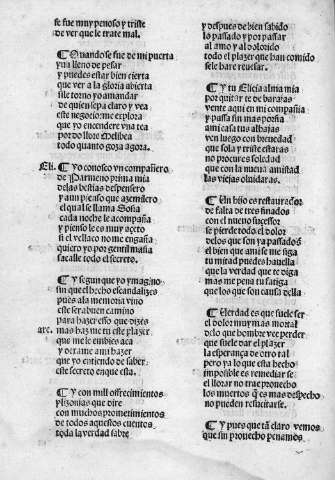 se fue muy penoso y triste
de ver que le trate mal.
¶ Quando se fue de mi puerta
yua lleno de pesar
y puedes estar bien cierta
que ver a la gloria abierta
si le torno yo a mandar
de quien sepa claro y vea
este negocio: me explora
que yo encender vna tea
por do lloro Melibea
todo quanto goza agora.
Eli. ¶ Yo conosco vn compañero
de Parmeno prima mia
delas bestias despensero
y aun pienso que azemilero
el qual se llama Sosia
cada noche le acompaña
y pienso le es muy aceto
si el vellaco no me engaña
quiero yo por gentil maña
sacalle todo el secreto.
¶ Y segun que yo ymagino
sin que el hecho escandalizes
pues ala memoria vino
este sera buen camino
para hazer esso que dizes
are. mas haz me tu este plazer
que me le embies aca
y dexame ami hazer
que yo entiendo de saber
este secreto en que esta.
¶ Y con mil offrecimientos
y lisonjas que dire
con muchos prometimientos
de todos aquestos cuentos
toda la verdad sabre
y despues de bien sabido
lo passado y por passar
al amo y al dolorido
todo el plazer que han comido
sele hare reuessar.
¶ Y tu Elicia alma mia
por quitar te de barajas
vente aqui en mi compañia
y passa sin mas porfia
a mi casa tus alhajas
ven luego con breuedad
que sola y triste estaras
no procures soledad
que con la nueua amistad
las viejas oluidaras.
¶ Un hijo es restaurador
de falta de tres finados
con el nueuo successor
se pierde todo el dolor
delos que son ya passados
el bien que ami se me siga
tu mirad puedes hauella
que la verdad que te diga
mas me pena tu fatiga
que los que son causa della
¶ Uerdad es que suele ser
el dolor muy mas mortal
delo que hombre vee perder
que suele dar el plazer
la esperança de otro tal
pero ya lo que esta hecho
impossible es remediar se
el llorar no trae prouecho
los muertos q̃ es mas despecho
no pueden resuscitarse.
¶ Y pues que tã claro vemos
que sin prouecho penamos